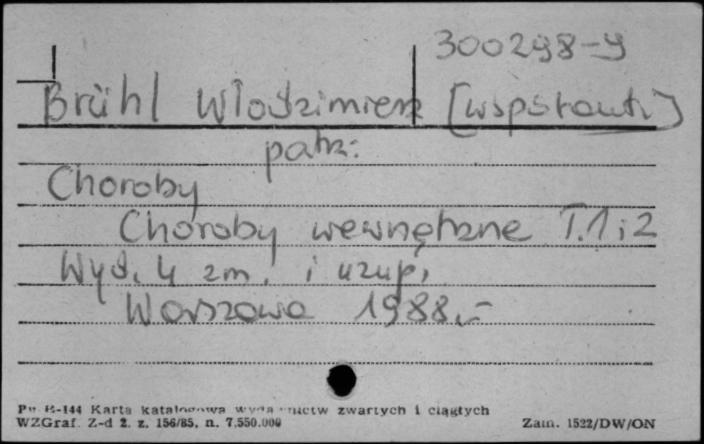 300298-9
Brühl Włodzimierz [współaut.]
patrz:
Choroby
Choroby wewnętrzne T. 1 i 2
Wyd. 4 zm. i uzup.
Warszawa 1988.-
Pu K-144 Karta katalogowa wydawnictw zwartych i ciągłych
WZGraf. Z-d 2. z. 156/85, n. 7.550.000
Zam. 1522/DW/ON